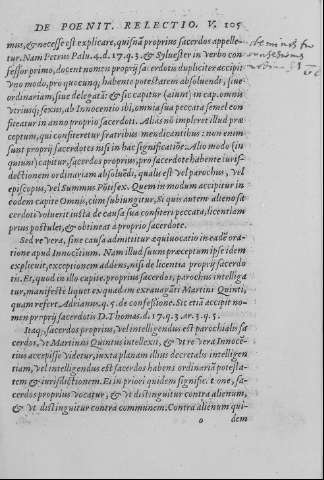 DE POENIT. RELECTIO. V. 105
mus, & necesse est explicare, quisnā proprius sacerdos appelle-
tur. Nam Petrus Palu. 4. d. 17. q. 3. & Syluester in verbo con
fessor primo, docent nomen proprij sacerdotis dupliciter accipit
vno modo, pro quocunq, habente potestatem absoluendi, siue
ordinariam, siue delegatā: & sic capitur (aiunt) in cap. omnis
vtriusq; sexus, ab Innocentio ibi, omnia sua peccata semel con
ficeatur in anno proprio sacerdoti. Aliàs nō impleret illud præ
ceptum, qui confiteretur fratribus mendicantibus: non enim
sunt proprij sacerdotes nisi in hac significatiōne. Alio modo (in
quiunt) capitur, sacerdos proprius, pro sacerdote habente iuris-
dictionem ordinariam absoluēdi, qualis est vel parochus, vel
episcopus, vel Summus Pōtifex. Quem in modum accipitur in
eodem capite Omnis, cùm subiungitur, Si quis autem alieno sa
cerdoti voluerit iusta de causa sua confiteri peccata, licentiam
prius postulet, & obtineat à proprio sacerdote.
Sed re vera, sine causa admittitur æquiuocatio in eadē orā-
tione apud Innocētium. Nam illud suum præceptum ipse idem
explicuit, exceptionem addens, nisi de licentia proprij sacerdo
tis. Et, quòd in illo capite, proprius sacerdos, parochus intelliga
tur, manifestè liquet ex quadam extrauagāti Martini Quinti,
quam refert Adrianus. q. 5. de confessione. Sic etiā accipit no-
men proprij sacerdotis D. Thomas. d. 17. q. 3. ar. 3. q. 5.
Itaq, sacerdos proprius, vel intelligendus est parochialis sa
cerdos, vt Martinus Quintus intellexit, & vt re vera Innocē-
tius accepisse videtur, iuxta planam illius decretalis intelligen
tiam, vel intelligendus est sacerdos habens ordinariā potesta-
tem & iurisdictionem. Et in priori quidem significatione, sa-
cerdos proprius vocatur, & vt distinguitur contra alienum,
& vt distinguitur contra communem. Contra alienum qui-
o dem